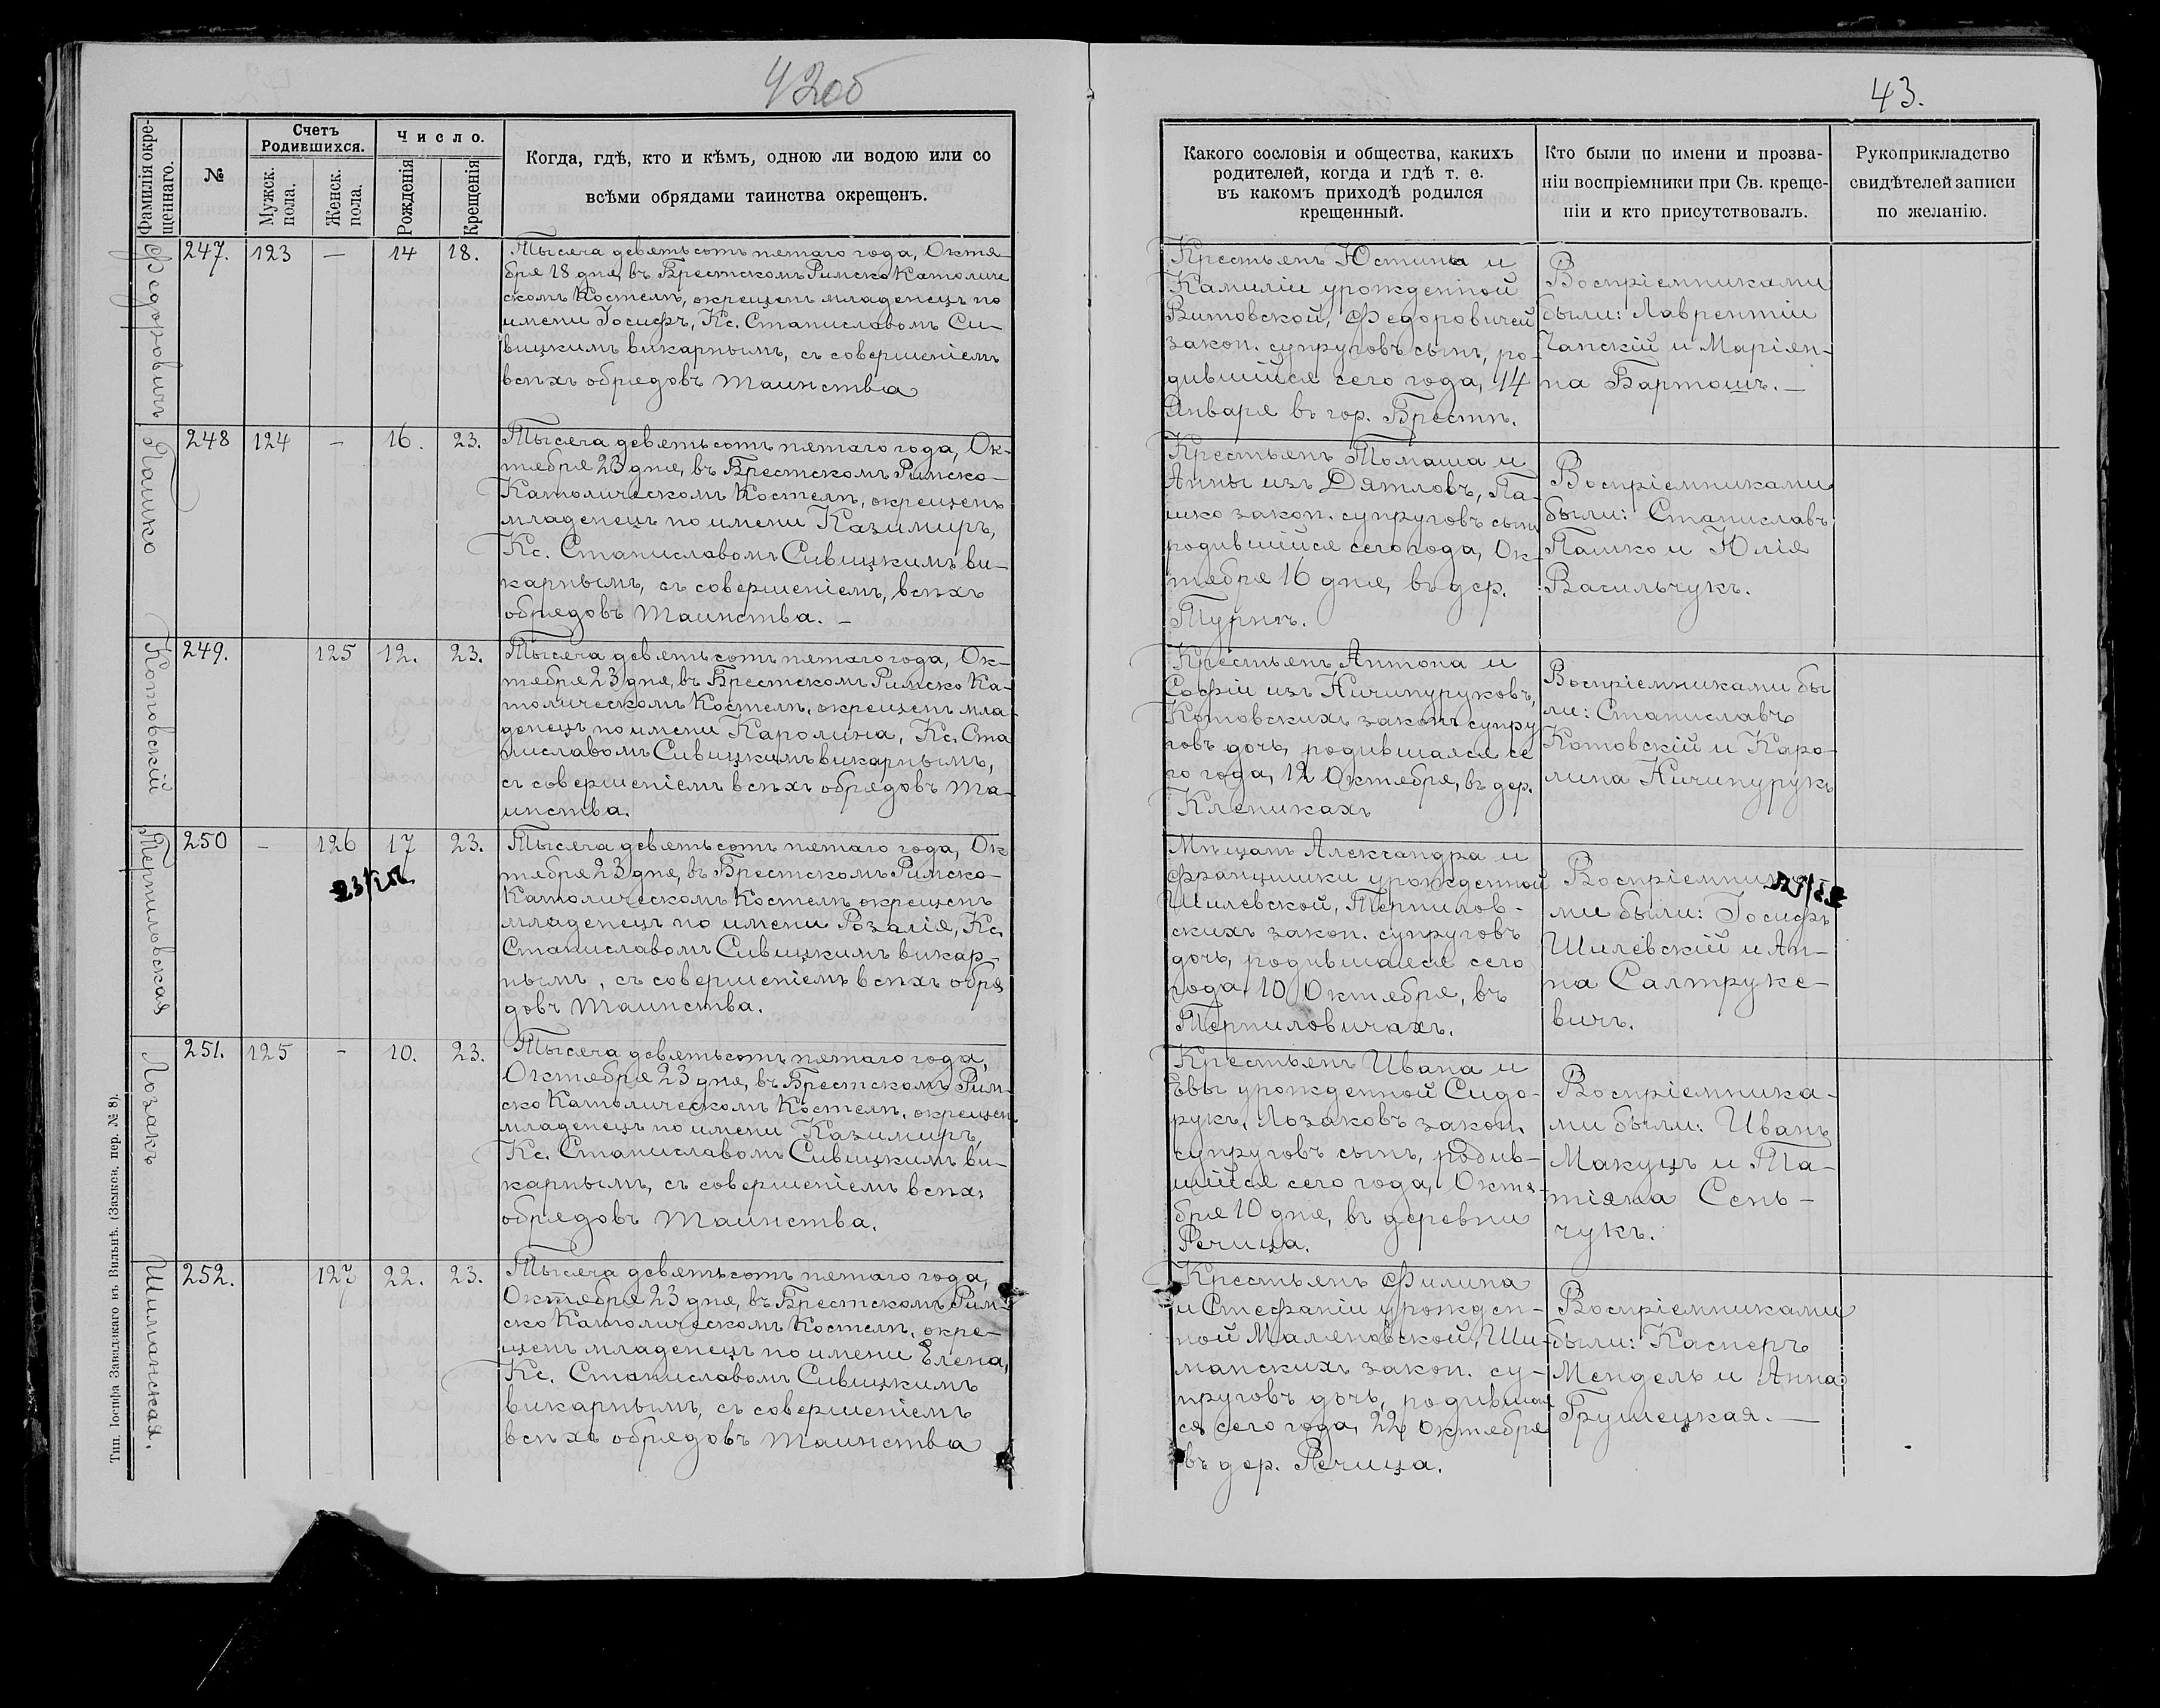 42об
Фамилія окре-
щеннаго.
№
Счетъ
Родившихся.
Мужск.
пола.
Женск.
пола.
Число.
Рожденія
Крещенія
Когда, гдѣ, кто и кѣмъ, одною ли водою или со
всѣми обрядами таинства окрещенъ.
Федоровичъ
247. 123 — 14 18.
Тысяча девятьсотъ пятаго года, Октя-
бря 18 дня, въ Брестскомъ Римско Католиче
скомъ Костелѣ, окрещенъ младенецъ по
имени Іосифъ, Кс. Станиславомъ Си-
вицкимъ викарнымъ, съ совершеніемъ
всѣхъ обрядовъ Таинства
Пашко
248 124 — 16. 23.
Тысяча девятьсотъ пятаго года, Ок-
тября 23 дня, въ Брестскомъ Римско-
Католическомъ Костелѣ, окрещенъ
младенецъ по имени Казимиръ,
Кс. Станиславомъ Сивицкимъ ви-
карнымъ, съ совершеніемъ, всѣхъ
обрядовъ Таинства. —
Котовскій
249. 125 12. 23.
Тысяча девятьсотъ пятаго года, Ок-
тября 23 дня, въ Брестскомъ Римско Ка-
толическомъ Костелѣ, окрещенъ мла-
денецъ по имени Каролина, Кс. Ста
ниславомъ Сивицкимъ викарнымъ,
съ совершеніемъ всѣхъ обрядовъ Та-
инства.
Терпиловская
250 — 126 17 23.
Тысяча девятьсотъ пятаго года, Ок
тября 23 дня, въ Брестскомъ Римско-
Католическомъ Костелѣ окрещенъ
младенецъ по имени Розалія, Кс.
Станиславомъ Сивицкимъ викар-
нымъ, съ совершеніемъ всѣхъ обря
довъ Таинства.
Лозакъ
251. 125 — 10. 23.
Тысяча девятьсотъ пятаго года,
Октября 23 дня, въ Брестскомъ Рим-
ско Католическомъ Костелѣ, окрещен
младенецъ по имени Казимиръ,
Кс. Станиславомъ Сивицкимъ ви-
карнымъ, съ совершеніемъ всѣхъ
обрядовъ Таинства.
Шиманская.
252. 127 22. 23.
Тысяча девятьсотъ пятаго года,
Октября 23 дня, въ Брестскомъ Рим-
ско Католическомъ Костелѣ, окре-
щенъ младенецъ по имени Елена,
Кс. Станиславомъ Сивицкимъ
викарнымъ, съ совершеніемъ
всѣхъ обрядовъ Таинства
Тип. Іосифа Завадзкаго въ Вильнѣ. (Замков. пер. № 8).
43.
Какого сословія и общества, какихъ
родителей, когда и гдѣ т. е.
въ какомъ приходѣ родился
крещенный.
Кто были по имени и прозва-
ніи воспріемники при Св. креще-
ніи и кто присутствовалъ.
Рукоприкладство
свидѣтелей записи
по желанію.
Крестьянъ Юстина и
Камиліи урожденной
Витовской, Федоровичей
закон. супруговъ сынъ, ро-
дившійся сего года, 14
Января въ гор. Брестѣ.
Воспріемниками
были: Лаврентій
Чапскій и Маріян-
на Бартошъ. —
Крестьянъ Томаша и
Анны изъ Дятловъ, Па-
шко закон. супруговъ сынъ
родившійся сего года, Ок-
тября 16 дня, въ дер.
Турнѣ.
Воспріемниками
были: Станиславъ
Пашко и Юлія
Васильчукъ.
Крестьянъ Антона и
Софіи изъ Ничипуруковъ,
Котовскихъ закон. супру
говъ дочь, родившаяся се
го года, 12 Октября, въ дер.
Клепикахъ
Воспріемниками бы
ли: Станиславъ
Котовскій и Каро-
лина Ничипурукъ
Мѣщанъ Александра и
Францишки урожденной
Шилевской, Терпилов-
скихъ закон. супруговъ
дочь, родившаяся сего
года, 10 Октября, въ
Терпиловичахъ.
Воспріемника-
ми были: Іосифъ
Шилевскій и Ан-
на Салтруке-
вичъ.
Крестьянъ Ивана и
Евы урожденной Сидо-
рукъ, Лозаковъ закон.
супруговъ сынъ, родив-
шійся сего года, Октя-
бря 10 дня, въ деревни
Речица.
Воспріемника-
ми были: Иванъ
Макуцъ и Та-
тіяна Сень-
чукъ.
Крестьянъ Филипа
и Стефаніи урожден-
ной Маленовской, Ши-
манскихъ закон. су-
пруговъ дочь, родившая
ся сего года, 22 Октября
въ дер. Речица.
Воспріемниками
были: Касперъ
Мендель и Анна
Грушецкая. —